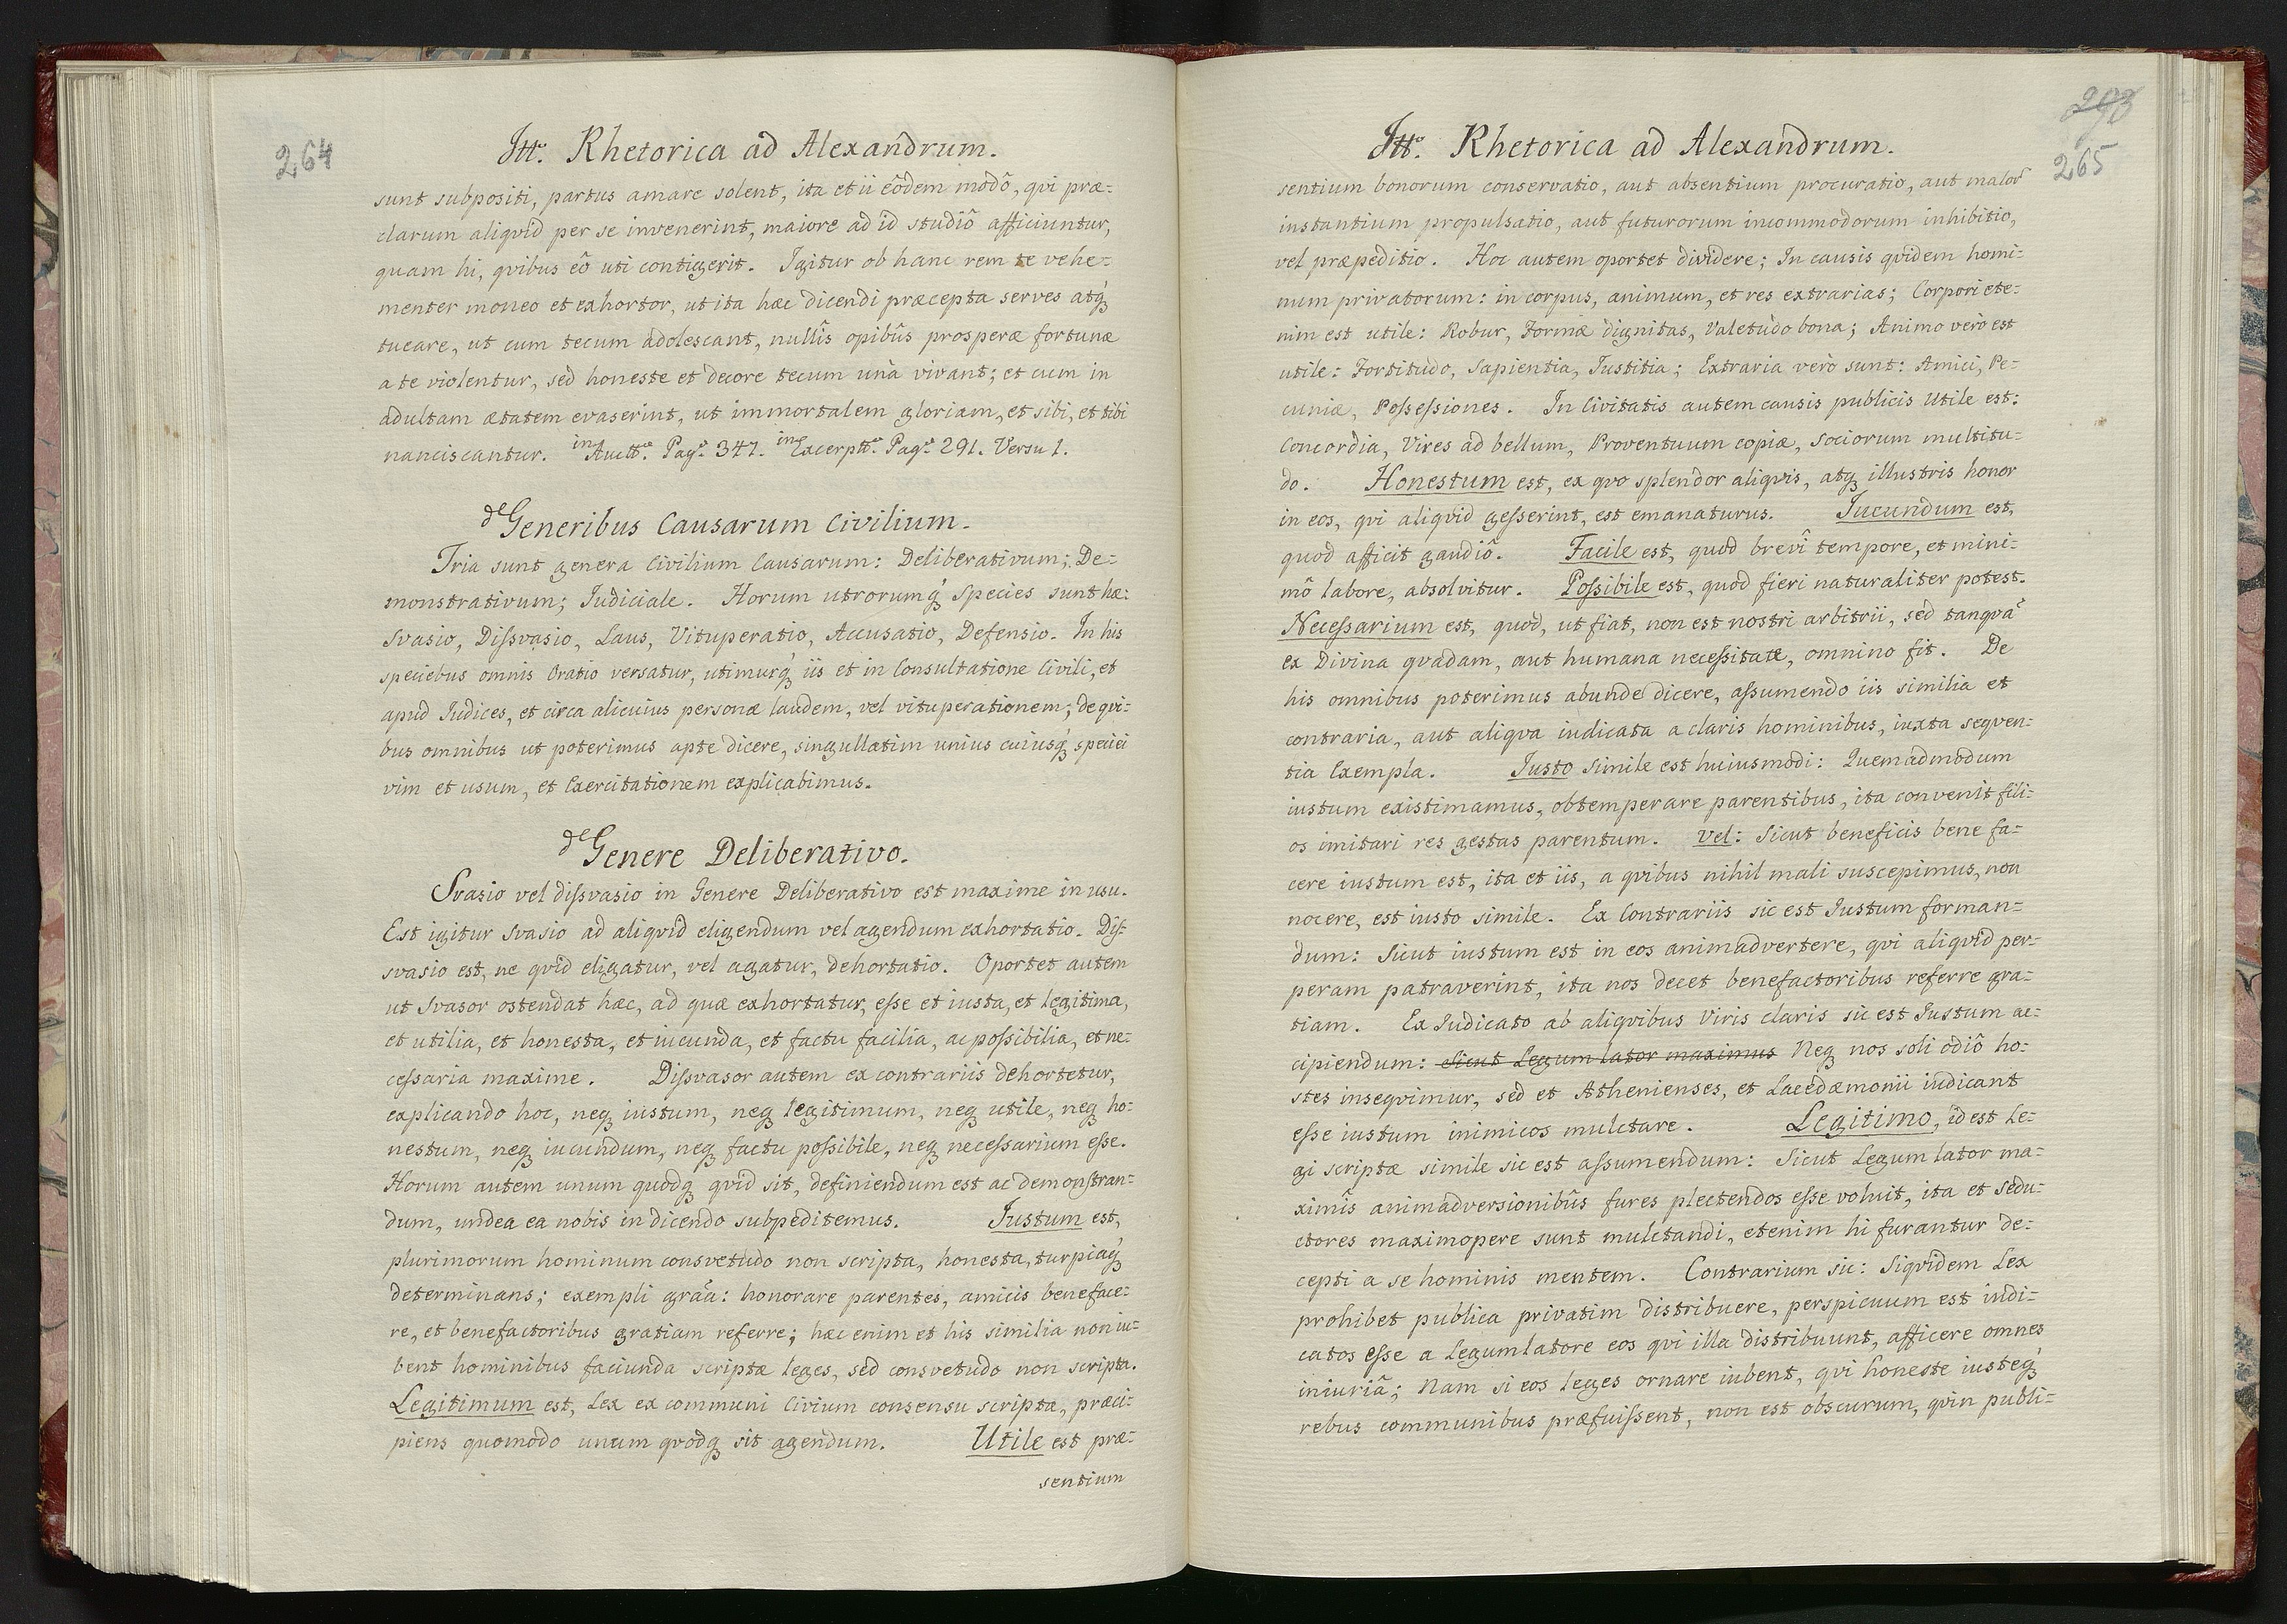 264
Itt̃. Rhetorica ad Alexandrum.
sunt subpositi, partus amare solent, ita et ii eôdem modô, qvi præ=
clarum aliqvid per se invenerint, maiore ad id studiô afficiuntur,
quam hi, qvibus eô uti contigerit. Igitur ob hanc rem te vehe=
menter moneo et exhortor, ut ita hæc dicendi præcepta serves atq́
tueare, ut cum tecum adolescant, nullîs opibûs prosperæ fortunæ
a te violentur, sed honeste et decore tecum unà vivant; et cum in
adultam ætatem evaserint, ut immortalem gloriam, et sibi, et tibi
nanciscantur. in Auctt. Pag. 347. in Excerptt. Pag. 291. Versu 1.
de Generibus Causarum Civilium.
Tria sunt genera Civilium Causarum: Deliberativum; De=
monstrativum; Iudiciale. Horum utrorumq́ Species sunt hæ:
Svasio, Diſsvasio, Laus, Vituperatio, Accusatio, Defensio. In his
speciebus omnis Oratio versatur, utimurq́ iis et in Consultatione Civili, et
apud Iudices, et circa alicuius personæ laudem, vel vituperationem; de qvi=
bus omnibus ut poterimus apte dicere, singullatim unius cuiusq́ speciei
vim et usum, et Exercitationem explicabimus.
de Genere Deliberativo.
Svasio vel diſsvasio in Genere Deliberativo est maxime in usu.
Est igitur Svasio ad aliqvid eligendum vel agendum exhortatio. Diſ-
svasio est, ne qvid eligatur, vel agatur, dehortatio. Oportet autem
ut Svasor ostendat hæc, ad quæ exhortatur, eſse et iusta, et legitima,
et utilia, et honesta, et iucunda, et factu facilia, ac poſsibilia, et ne=
ceſsaria maxime. Diſsvasor autem ex contrariis dehortetur,
explicando hoc, neq iustum, neq legitimum, neq utile, neq ho=
nestum, neq iucundum, neq factu poſsibile, neq neceſsarium eſse.
Horum autem unum quodq qvid sit, definiendum est ac demonſtran=
dum, undea ea nobis in dicendo subpeditemus. Iustum est,
plurimorum hominum consvetudo non scripta, honesta, turpiaq́
determinans; exempli grãa: honorare parentes, amicis beneface=
re, et benefactoribus gratiam referre; hæc enim et his similia non iu=
bent hominibus faciunda scriptæ leges, sed consvetudo non scripta.
Legitimum est, Lex ex communi Civium consensu scripta, præci=
piens quomodo unum qvodq sit agendum. Utile est præ=
sentium
293
265
Itt̃. Rhetorica ad Alexandrum.
sentium bonorum conservatio, aut absentium procuratio, aut malor̃
instantium propulsatio, aut futurorum incommodorum inhibitio,
vel præpeditio. Hoc autem oportet dividere; In causis qvidem homi=
num privatorum: in corpus, animum, et res extrarias; Corpori ete=
nim est utile: Robur, Formæ dignitas, Valetudo bona; Animo verò est
utile: Fortitudo, Sapientia, Iustitia; Extraria verò sunt: Amici, Pe=
cuniæ, Poſseſsiones. In Civitatis autem causis publicis Utile est:
Concordia, Vires ad bellum, Proventuum copiæ, Sociorum multitu=
do. Honestum est, ex qvo splendor aliqvis, atq illustris honor
in eos, qvi aliqvid geſserint, est emanaturus. Iucundum est,
quod afficit gaudiô. Facile est, quod brevî tempore, et mini=
mô labore, absolvitur. Poſsibile est, quod fieri naturaliter potest.
Neceſsarium est, quod, ut fiat, non est nostri arbitrii, sed tanqvã
ex Divina qvadam, aut humana neceſsitate, omnino fit. De
his omnibus poterimus abunde dicere, aſsumendo iis similia et
contraria, aut aliqva iudicata a claris hominibus, iuxta seqven=
tia Exempla. Iusto simile est huiusmodi: Quemadmodum
iustum existimamus, obtemperare parentibus, ita convenit fili=
os imitari res gestas parentum. Vel: Sicut beneficis bene fa=
cere iustum est, ita et iis, a qvibus nihil mali suscepimus, non
nocere, est iusto simile. Ex Contrariis sic est Iustum forman=
dum: Sicut iustum est in eos animadvertere, qvi aliqvid per=
peram patraverint, ita nos decet benefactoribus referre gra=
tiam. Ex Iudicato ab aliqvibus Viris claris sic est Iustum ac=
cipiendum: Sicut Legum lator maximus Neq nos soli odiô ho=
stes inseqvimur, sed et Athenienses, et Lacedæmonii iudicant
eſse iustum inimicos mulctare. Legitimo, id est Le=
gi scriptæ simile sic est aſsumendum: Sicut Legum lator ma=
ximîs animadversionibûs fures plectendos eſse voluit, ita et sedu=
ctores maximopere sunt mulctandi, etenim hi furantur de=
cepti a se hominis mentem. Contrarium sic: Siqvidem Lex
prohibet publica privatim distribuere, perspicuum est iudi=
catos eſse a Legumlatore eos qvi illa distribuunt, afficere omnes
iniuriâ; Nam si eos leges ornare iubent, qvi honeste iusteq́
rebus communibus præfuiſsent, non est obscurum, qvin publi=